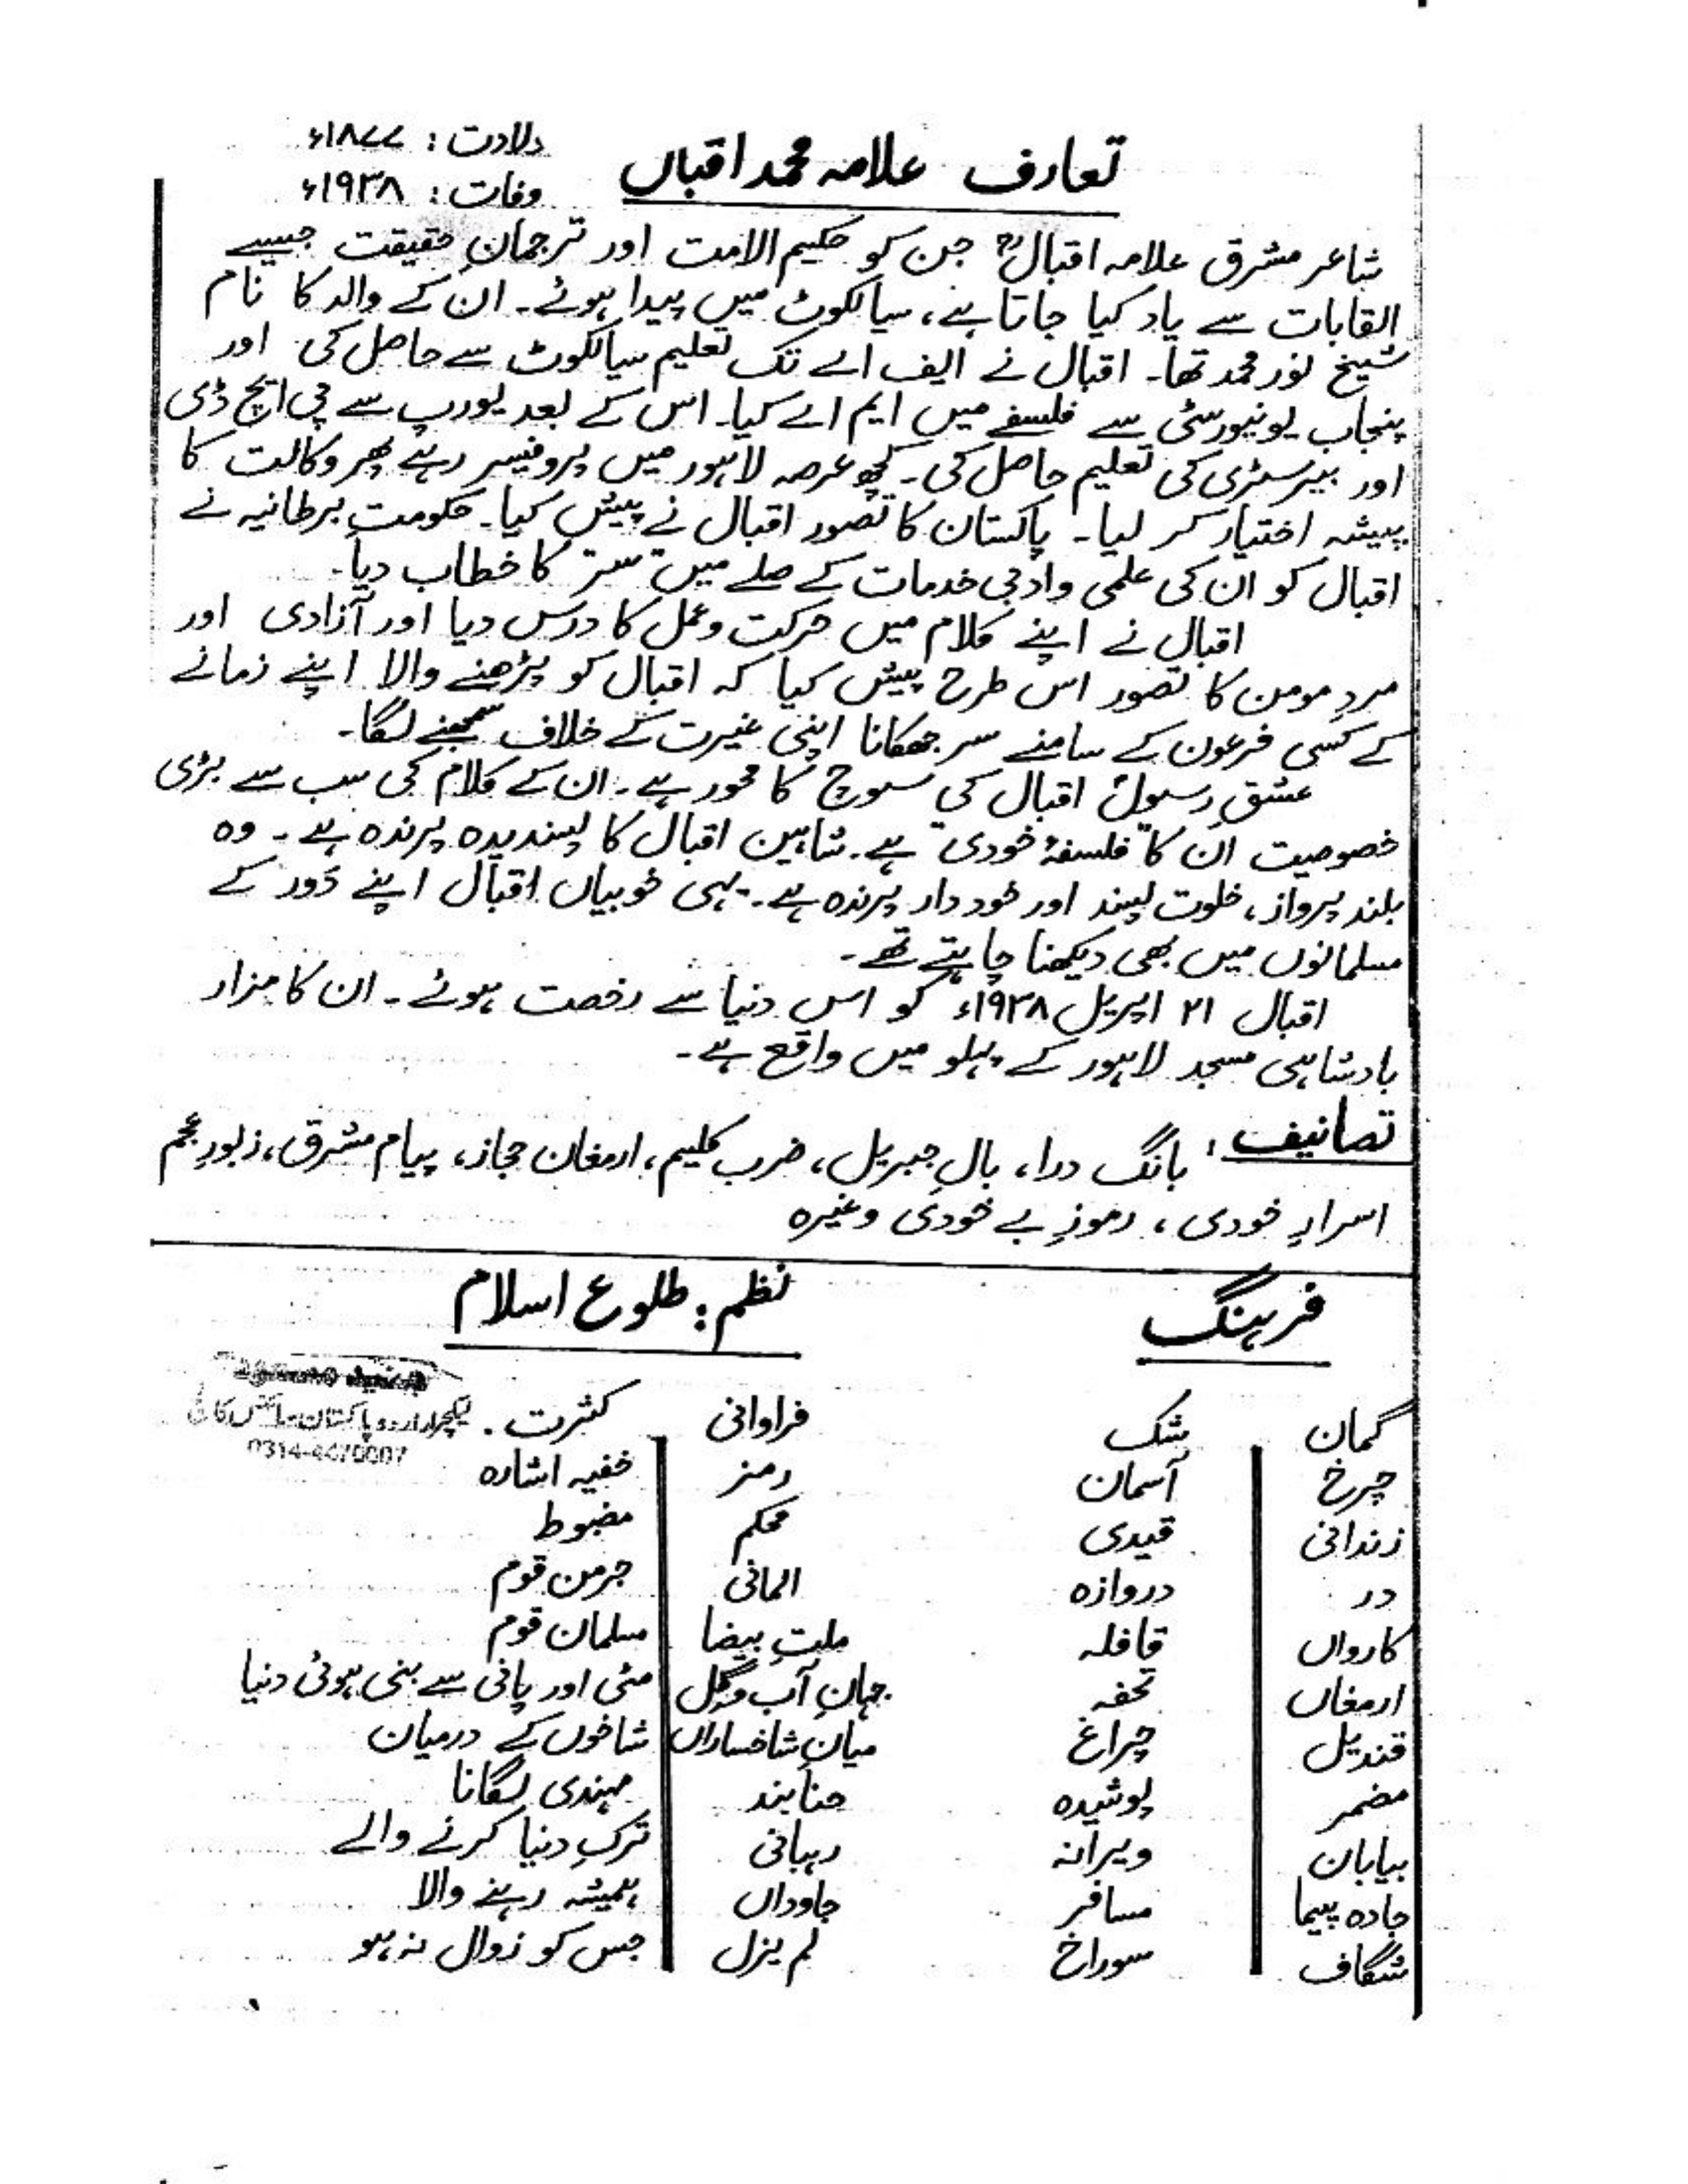 تعارف علامہ محمد اقبال
ولادت : ۱۸۷۷ء
وفات : ۱۹۳۸ء
شاعر مشرق علامہ اقبالؒ جن کو حکیم الامت اور ترجمانِ حقیقت جیسے
القابات سے یاد کیا جاتا ہے، سیالکوٹ میں پیدا ہوئے۔ ان کے والد کا نام
شیخ نور محمد تھا۔ اقبال نے ایف اے تک تعلیم سیالکوٹ سے حاصل کی اور
پنجاب یونیورسٹی سے فلسفے میں ایم اے کیا۔ اس کے بعد یورپ سے پی ایچ ڈی
اور بیرسٹری کی تعلیم حاصل کی۔ کچھ عرصہ لاہور میں پروفیسر رہے پھر وکالت کا
پیشہ اختیار کر لیا۔ پاکستان کا تصور اقبال نے پیش کیا۔ حکومتِ برطانیہ نے
اقبال کو ان کی علمی و ادبی خدمات کے صلے میں "سر" کا خطاب دیا۔
اقبال نے اپنے کلام میں حرکت و عمل کا درس دیا اور آزادی اور
مردِ مومن کا تصور اس طرح پیش کیا کہ اقبال کو پڑھنے والا اپنے زمانے
کے کسی فرعون کے سامنے سر جھکانا اپنی غیرت کے خلاف سمجھنے لگا۔
عشقِ رسولؐ اقبال کی سوچ کا محور ہے۔ ان کے کلام کی سب سے بڑی
خصوصیت ان کا "فلسفۂ خودی" ہے۔ شاہین اقبال کا پسندیدہ پرندہ ہے۔ وہ
بلند پرواز، خلوت پسند اور خود دار پرندہ ہے۔ یہی خوبیاں اقبال اپنے دَور کے
مسلمانوں میں بھی دیکھنا چاہتے تھے۔
اقبال ۲۱ اپریل ۱۹۳۸ء کو اس دنیا سے رخصت ہوئے۔ ان کا مزار
بادشاہی مسجد لاہور کے پہلو میں واقع ہے۔
تصانیف : بانگ درا، بالِ جبریل، ضرب کلیم، ارمغان حجاز، پیام مشرق، زبورِ عجم
اسرارِ خودی ، رموزِ بے خودی وغیرہ
فرہنگ
نظم : طلوع اسلام
گمان شک فراوانی کثرت
لیکچرار اردو پاکستان
چرخ آسمان رمز خفیہ اشارہ
زندانی قیدی محکم مضبوط
در دروازہ المانی جرمن قوم
کارواں قافلہ ملتِ بیضا مسلمان قوم
ارمغاں تحفہ جہانِ آب و گل مٹی اور پانی سے بنی ہوئی دنیا
قندیل چراغ میانِ شاخساراں شاخوں کے درمیان
مضمر پوشیدہ حنا بند مہندی لگانا
بیابان ویرانہ رہبانی ترکِ دنیا کرنے والے
جادہ پیما مسافر جاوداں ہمیشہ رہنے والا
شگاف سوراخ لم یزل جس کو زوال نہ ہو